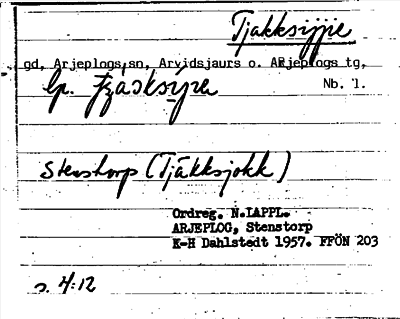 Tjakksijjie
gd, Arjeplogs sn, Arvidsjaurs o. Arjeplogs tg,
lp.
Nb. l.
Stenstorp (Tjäkksjokk)
Ordreg. N.LAPPL.
ARJEPLOG, Stenstorp
K-H Dahlstedt 1957. FFÖN 203
s. 4:12